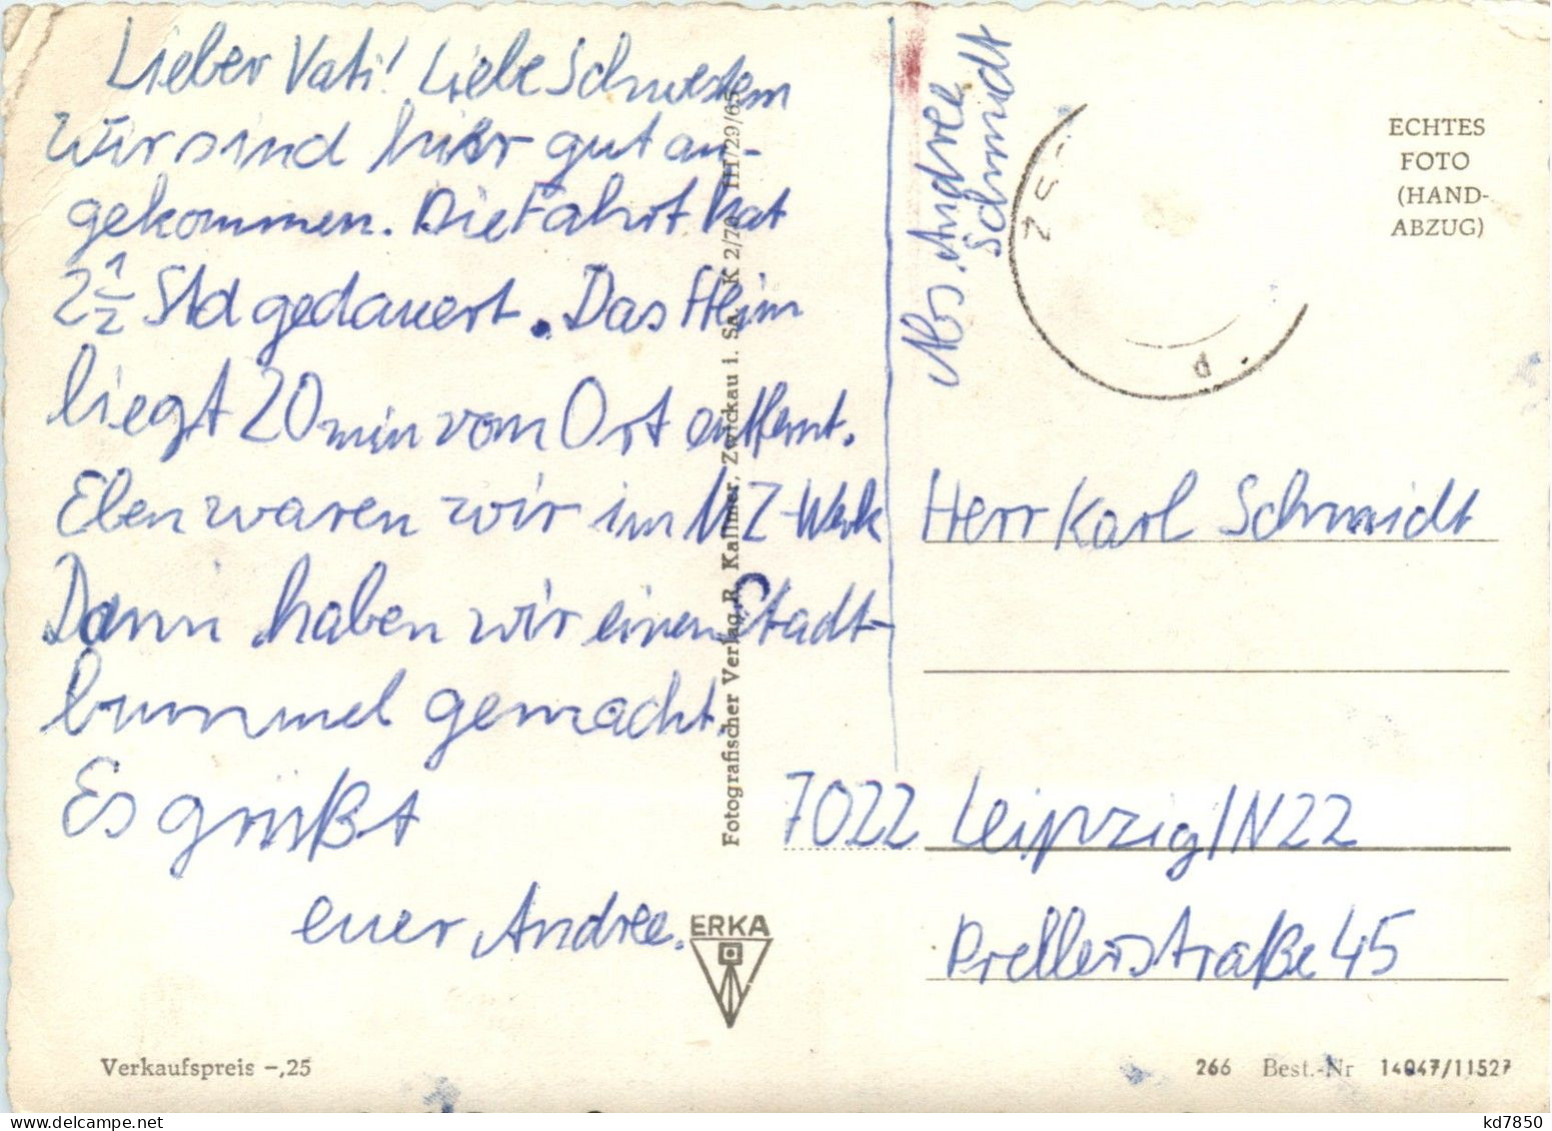 Lieber Vati! Liebe Schwestern
Wir sind hier gut an-
gekommen. Die Fahrt hat
2 1/2 Std gedauert. Das Heim
liegt 20 min vom Ort entfernt.
Eben waren wir im MZ-Werk
Dann haben wir einen Stadt-
bummel gemacht.
Es grüßt
euer Andree.
Verkaufspreis -,25
Fotografischer Verlag R. Kallmer, Zwickau i. Sa. K 2/70 III/29/65
ERKA
Abs. Andree
Schmidt
ECHTES
FOTO
(HAND-
ABZUG)
Herr Karl Schmidt
7022 Leipzig/N22
Prellerstraße 45
266 Best.-Nr 14047/11527
kd7850